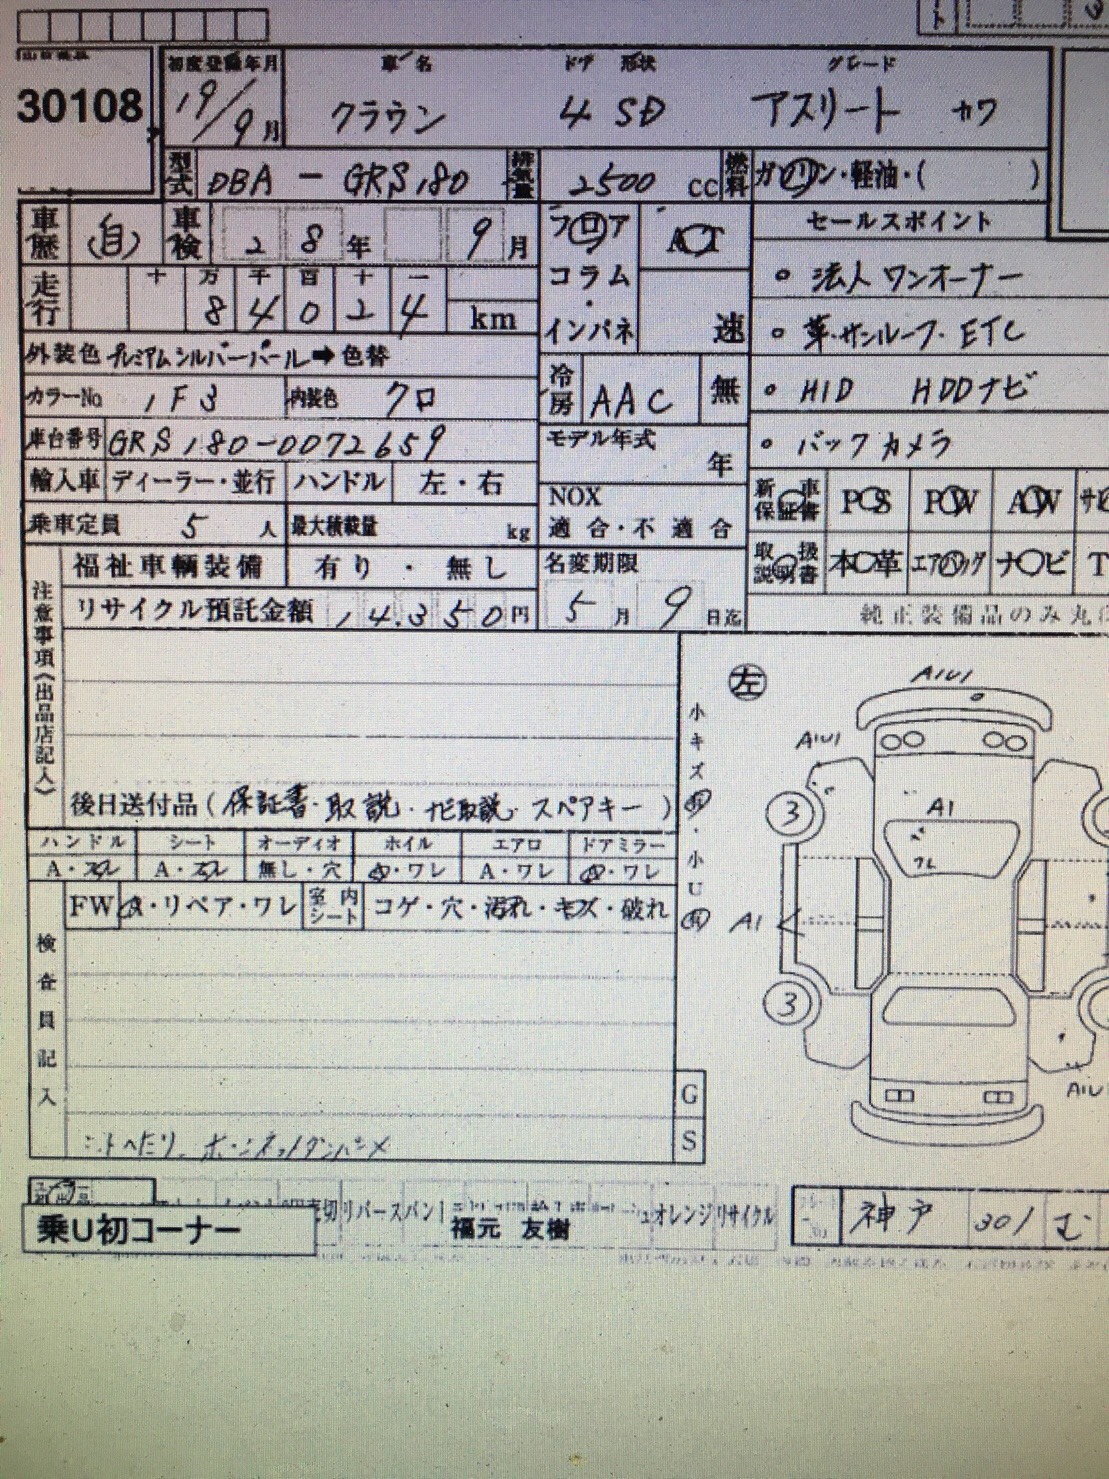 30108
初度登録年月 車名 ドア 形状 グレード
19/9月 クラウン 4 SD アスリート カワ
型式 DBA - GRS180 排気量 2500 cc 燃料 ガソリン・軽油・( )
車歴 (自) 車検 28年 9月 フロア AT セールスポイント
十 万 千 百 十 一 コラム ・ 法人 ワンオーナー
走行 84024 km インパネ 速 ・ 革・サンルーフ・ETC
外装色 プレミアムシルバーパール➡色替
カラーNo 1F3 内装色 クロ 冷房 AAC 無 ・ HID HDDナビ
車台番号 GRS180-0072659 モデル年式 年 ・ バックカメラ
輸入車 ディーラー・並行 ハンドル 左・右 NOX 新車保証書 PS PW AW
乗車定員 5人 最大積載量 kg 適合・不適合
福祉車輌装備 有り・無し 名変期限 取扱説明書 本革 エアバッグ ナビ T
リサイクル預託金額 14,350円 5月9日迄 純正装備品のみ丸
注意事項(出品店記入)
左 A1U1
小キズ有・小U有
A1U1
3 A1
ワレ
後日送付品(保証書・取説・ナビ取説・スペアキー)
ハンドル シート オーディオ ホイル エアロ ドアミラー
A・スレ A・スレ 無し・穴 A・ワレ A・ワレ A・ワレ
FW A・リペア・ワレ 室内シート コゲ・穴・汚れ・キズ・破れ
A1
検査員記入
3
A1U
G
S
シートへたり ボンネットダンパーメ
切 リバース オレンジ リサイクル
乗U初コーナー 福元 友樹
神戸 301 む